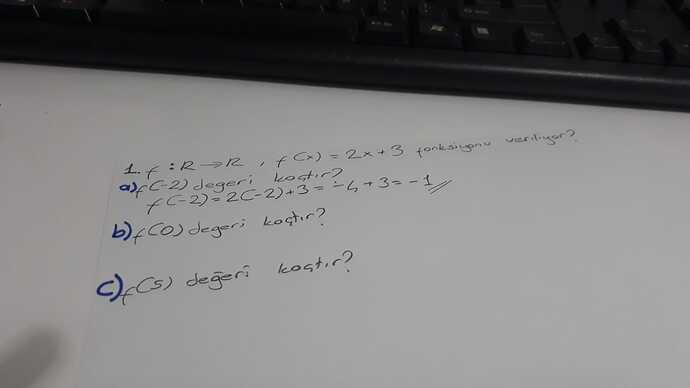 1. f : R → R , f(x) = 2x + 3 fonksiyonu veriliyor?
a) f(-2) değeri kaçtır?
f(-2) = 2(-2) + 3 = -4 + 3 = -1 //
b) f(0) değeri kaçtır?
c) f(5) değeri kaçtır?